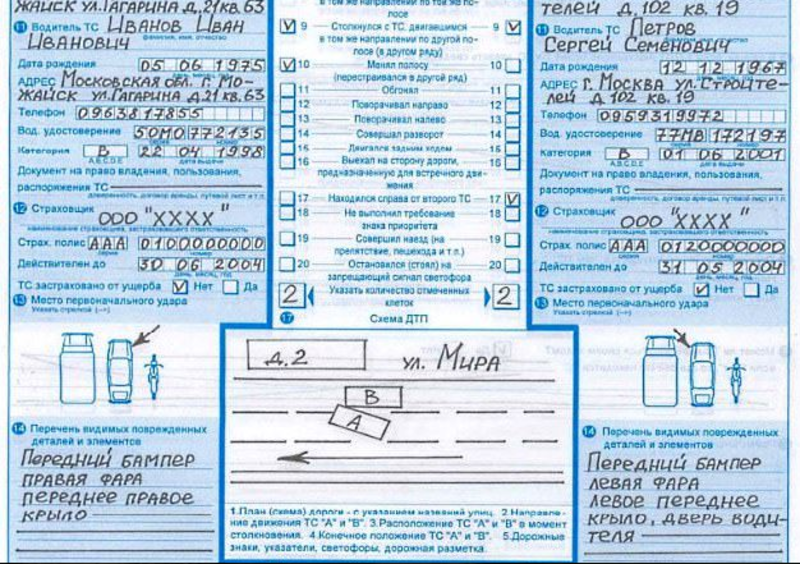 ЖАЙСК УЛ. ГАГАРИНА Д. 21 КВ. 63
11 Водитель ТС ИВАНОВ ИВАН
фамилия, имя, отчество
ИВАНОВИЧ
Дата рождения 05 06 1975
день, месяц, год
АДРЕС МОСКОВСКАЯ ОБЛ. Г. МО-
ЖАЙСК УЛ. ГАГАРИНА Д. 21 КВ. 63
Телефон 09638178 55
Вод. удостоверение 50МО 772135
Категория В 22 04 1998
A,B,C,D,E дата выдачи
Документ на право владения, пользования,
распоряжения ТС
доверенность, договор аренды, путевой лист и т.п.
12 Страховщик
ООО "ХХХХ"
наименование страховщика, застраховавшего ответственность
Страх. полис ААА 0100000000
серия номер
Действителен до 30 06 2004
день, месяц, год
ТС застраховано от ущерба V Нет Да
13 Место первоначального удара
Указать стрелкой (→)
14 Перечень видимых поврежденных
деталей и элементов
ПЕРЕДНИЙ БАМПЕР
ПРАВАЯ ФАРА
ПЕРЕДНЕЕ ПРАВОЕ
КРЫЛО
в том же направлении по той же по-
лосе
V 9 Столкнулся с ТС, двигавшимся 9 V
в том же направлении по другой по-
лосе (в другом ряду)
V 10 Менял полосу 10
(перестраивался в другой ряд)
11 Обгонял 11
12 Поворачивал направо 12
13 Поворачивал налево 13
14 Совершал разворот 14
15 Двигался задним ходом 15
16 Выехал на сторону дороги, 16
предназначенную для встречного дви-
жения
17 Находился справа от второго ТС 17 V
18 Не выполнил требование 18
знака приоритета
19 Совершил наезд (на 19
препятствие, пешехода и т.п.)
20 Остановился (стоял) на 20
запрещающий сигнал светофора
2 Указать количество отмеченных 2
клеток
17 Схема ДТП
Д. 2 УЛ. МИРА
В
А
1.План (схема) дороги - с указанием названий улиц. 2 Направле-
ние движения ТС "А" и "В". 3.Расположение ТС "А" и "В" в момент
столкновения. 4.Конечное положение ТС "А" и "В". 5.Дорожные
знаки, указатели, светофоры, дорожная разметка.
ТЕЛЕЙ Д. 102 КВ. 19
11 Водитель ТС ПЕТРОВ
фамилия, имя, отчество
СЕРГЕЙ СЕМЕНОВИЧ
Дата рождения 12 12 1967
день, месяц, год
АДРЕС Г. МОСКВА УЛ. СТРОИТЕ-
ЛЕЙ Д. 102 КВ. 19
Телефон 0959319972
Вод. удостоверение 77МВ 172197
Категория В 01 06 2001
A,B,C,D,E дата выдачи
Документ на право владения, пользования,
распоряжения ТС
доверенность, договор аренды, путевой лист и т.п.
12 Страховщик
ООО "ХХХХ"
наименование страховщика, застраховавшего ответственность
Страх. полис ААА 0120000000
серия номер
Действителен до 31 05 2004
день, месяц, год
ТС застраховано от ущерба V Нет Да
13 Место первоначального удара
Указать стрелкой (→)
14 Перечень видимых поврежденных
деталей и элементов
ПЕРЕДНИЙ БАМПЕР
ЛЕВАЯ ФАРА
ЛЕВОЕ ПЕРЕДНЕЕ
КРЫЛО, ДВЕРЬ ВОДИ-
ТЕЛЯ